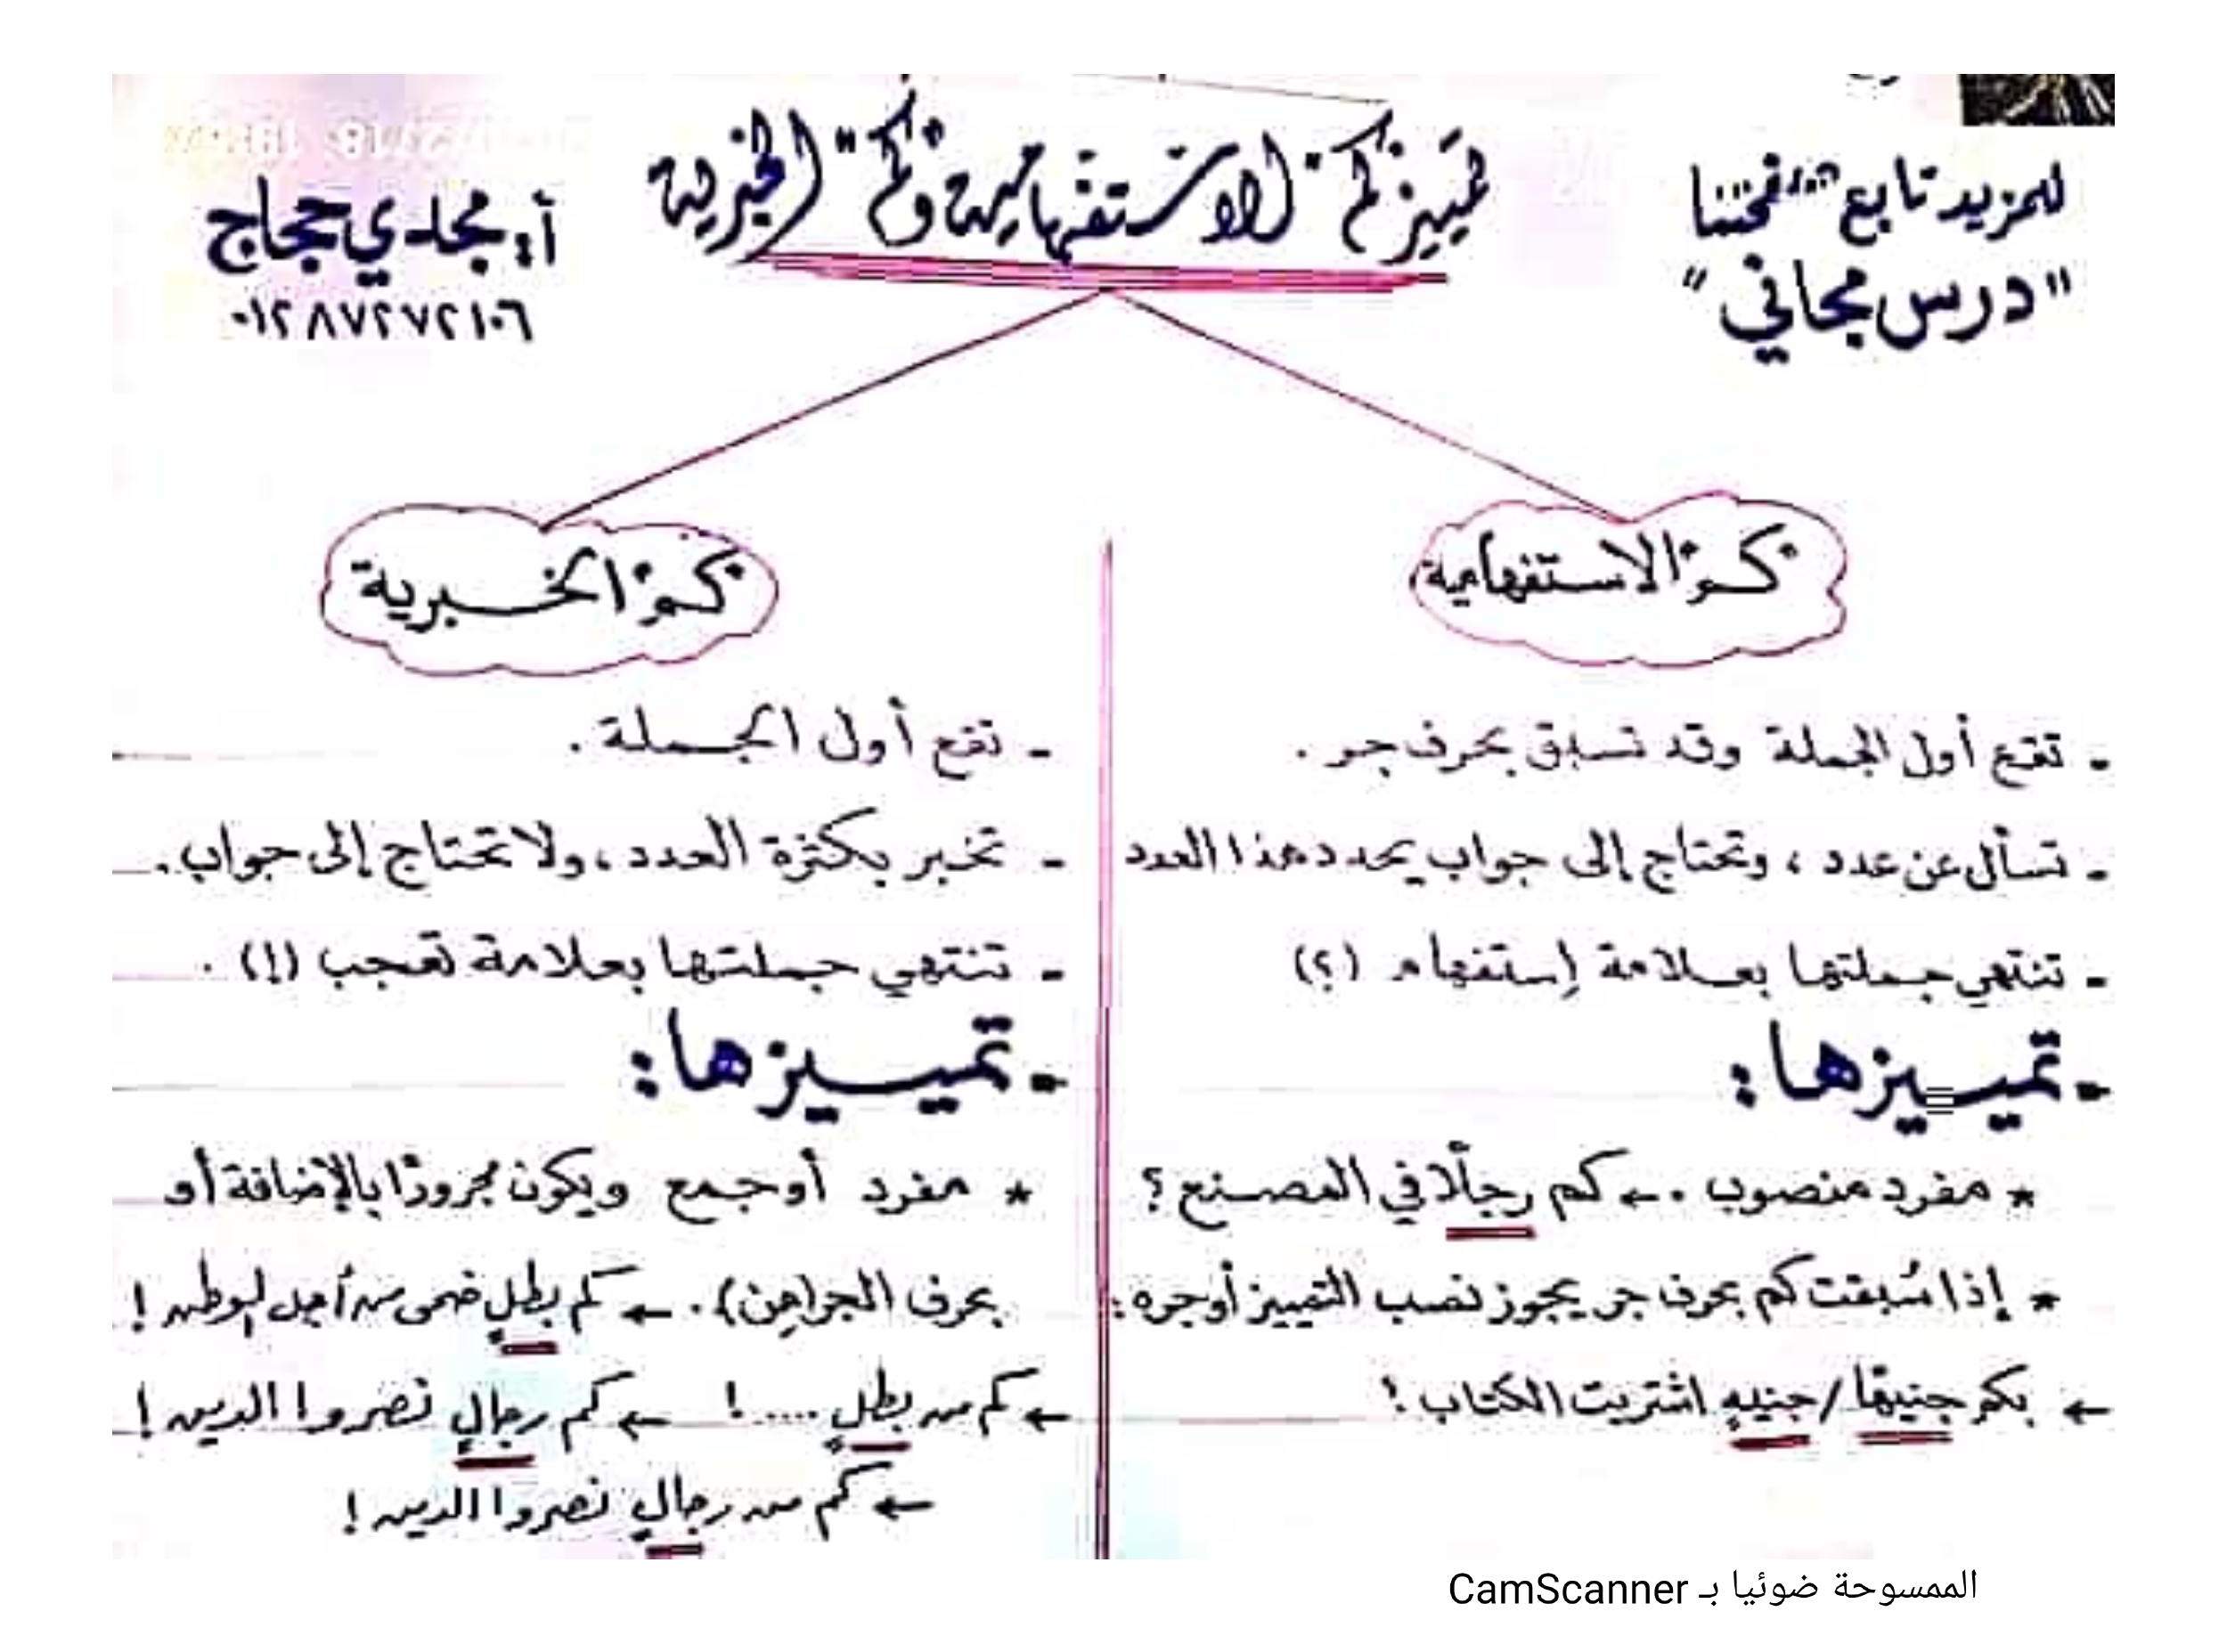 للمزيد تابع صفحتنا
"درس مجاني"
تمييز "كم" الاستفهامية و"كم" الخبرية
أ. مجدي حجاج
٠١٢٨٧٢٧٢١٠٦
كمْ الاستفهامية
- تقع أول الجملة وقد تسبق بحرف جر .
- تسأل عن عدد ، وتحتاج إلى جواب يحدد هذا العدد
- تنتهي جملتها بعلامة إستفهام (؟)
- تمييزها :
* مفرد منصوب . ← كم رجلًا في المصنع ؟
* إذا سُبقت كم بحرف جر يجوز نصب التمييز أو جره :
← بكم جنيهًا / جنيهٍ اشتريت الكتاب ؟
كمْ الخبرية
- تقع أول الجملة .
- تخبر بكثرة العدد ، ولا تحتاج إلى جواب .
- تنتهي جملتها بعلامة تعجب (!) .
- تمييزها :
* مفرد أو جمع ويكون مجرورًا بالإضافة أو
بحرف الجر (مِن) . ← كم بطلٍ ضحى من أجل الوطن !
← كم من بطلٍ .... ! ← كم رجالٍ نصروا الدين !
← كم من رجالٍ نصروا الدين !
الممسوحة ضوئيا بـ CamScanner